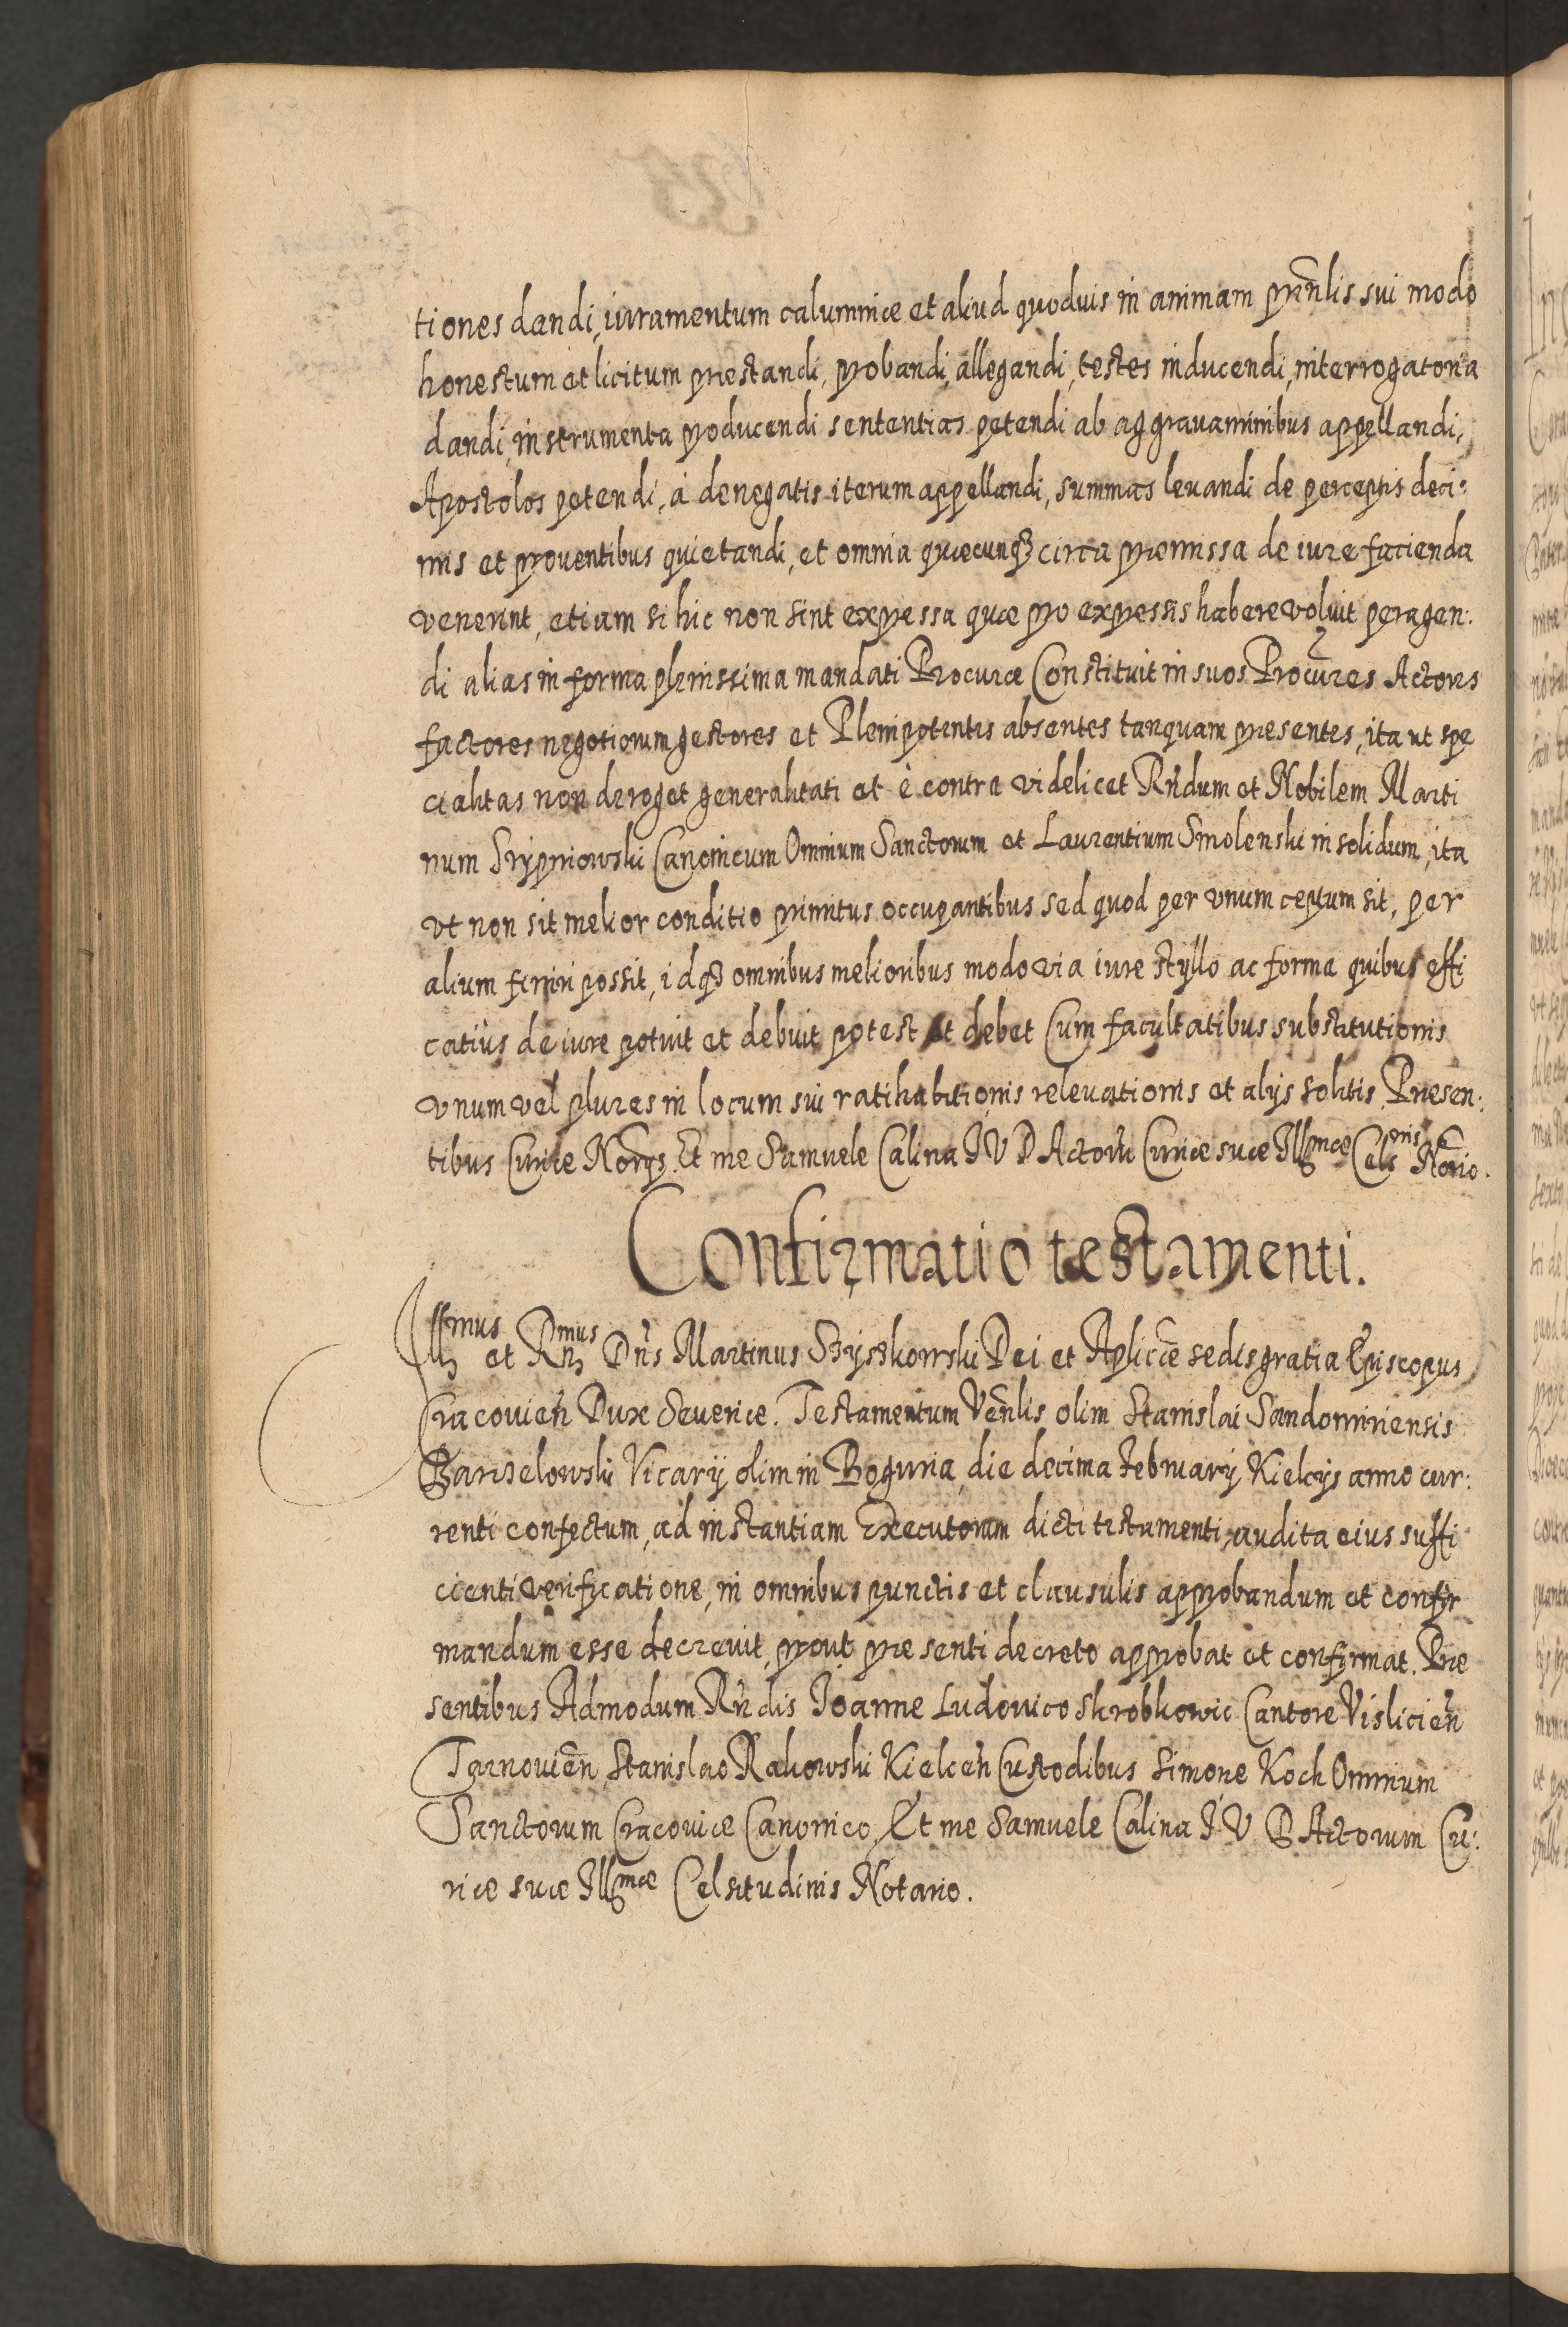 tiones dandi, iuramentum calumniæ et aliud quoduis in animam prñlis sui modo
honestum et licitum præstandi, probandi, allegandi, testes inducendi, interrogatoria
dandi, instrumenta producendi sententias petendi ab aggrauaminibus appellandi,
Apostolos petendi, à denegatis iterum appellandi, summas leuandi de perceptis deci:
mis et prouentibus quietandi, et omnia quæcunqꝫ circa præmissa de iure facienda
venerint, etiam si hic non sint expressa quæ pro expressis habere voluit peragen:
di alias in forma plenissima mandati Procuræ Constituit in suos Procures Actores
factores negotiorum gestores et Plenipotentes absentes tanquam præsentes, ita ut spe
cialitas non deroget generalitati et è contra videlicet Rńdum et Nobilem Marti
num Srzypniowski Canonicum Omnium Sanctorum et Laurentium Smolenski in solidum, ita
vt non sit melior conditio primitus occupantibus sed quod per vnum ceptum sit, per
alium finiri possit, idqꝫ omnibus melioribus modo via iure styllo ac forma quibus effi
catius de iure potuit et debuit potest et debet Cum facultatibus substitutionis
vnum vel plures in locum sui ratihabitionis releuationis et alijs solitis. Præsen:
tibus Curiæ Norijs. Et me Samuele Calina I V D Actorũ Curiæ suæ Illmæ Celsnis Norio.
Confirmatio testamenti.
Illmus et Rńmus Dńs Martinus Szyszkowski Dei et Aplicæ sedis gratia Episcopus
Cracouień Dux Seueriæ. Testamentum Venlis olim Stanislai Sandomiriensis
Barszelowski Vicarij olim in Boguria, die decima Februarij Kielcijs anno cur:
renti confectum, ad instantiam Executorum dicti testamenti, audita eius suffi
cienti verificatione, in omnibus punctis et clausulis approbandum et confir
mandum esse decreuit, prout præsenti decreto approbat et confirmat. Præ
sentibus Admodum Rńdis Ioanne Ludouico Skrobkowic Cantore Vislicień
Tarnouień, Stanislao Rakowski Kielceń Custodibus Simone Koch Omnium
Sanctorum Cracouiæ Canonico, Et me Samuele Calina I V D Actorum Cu:
riæ suæ Illmæ Celsitudinis Notario.